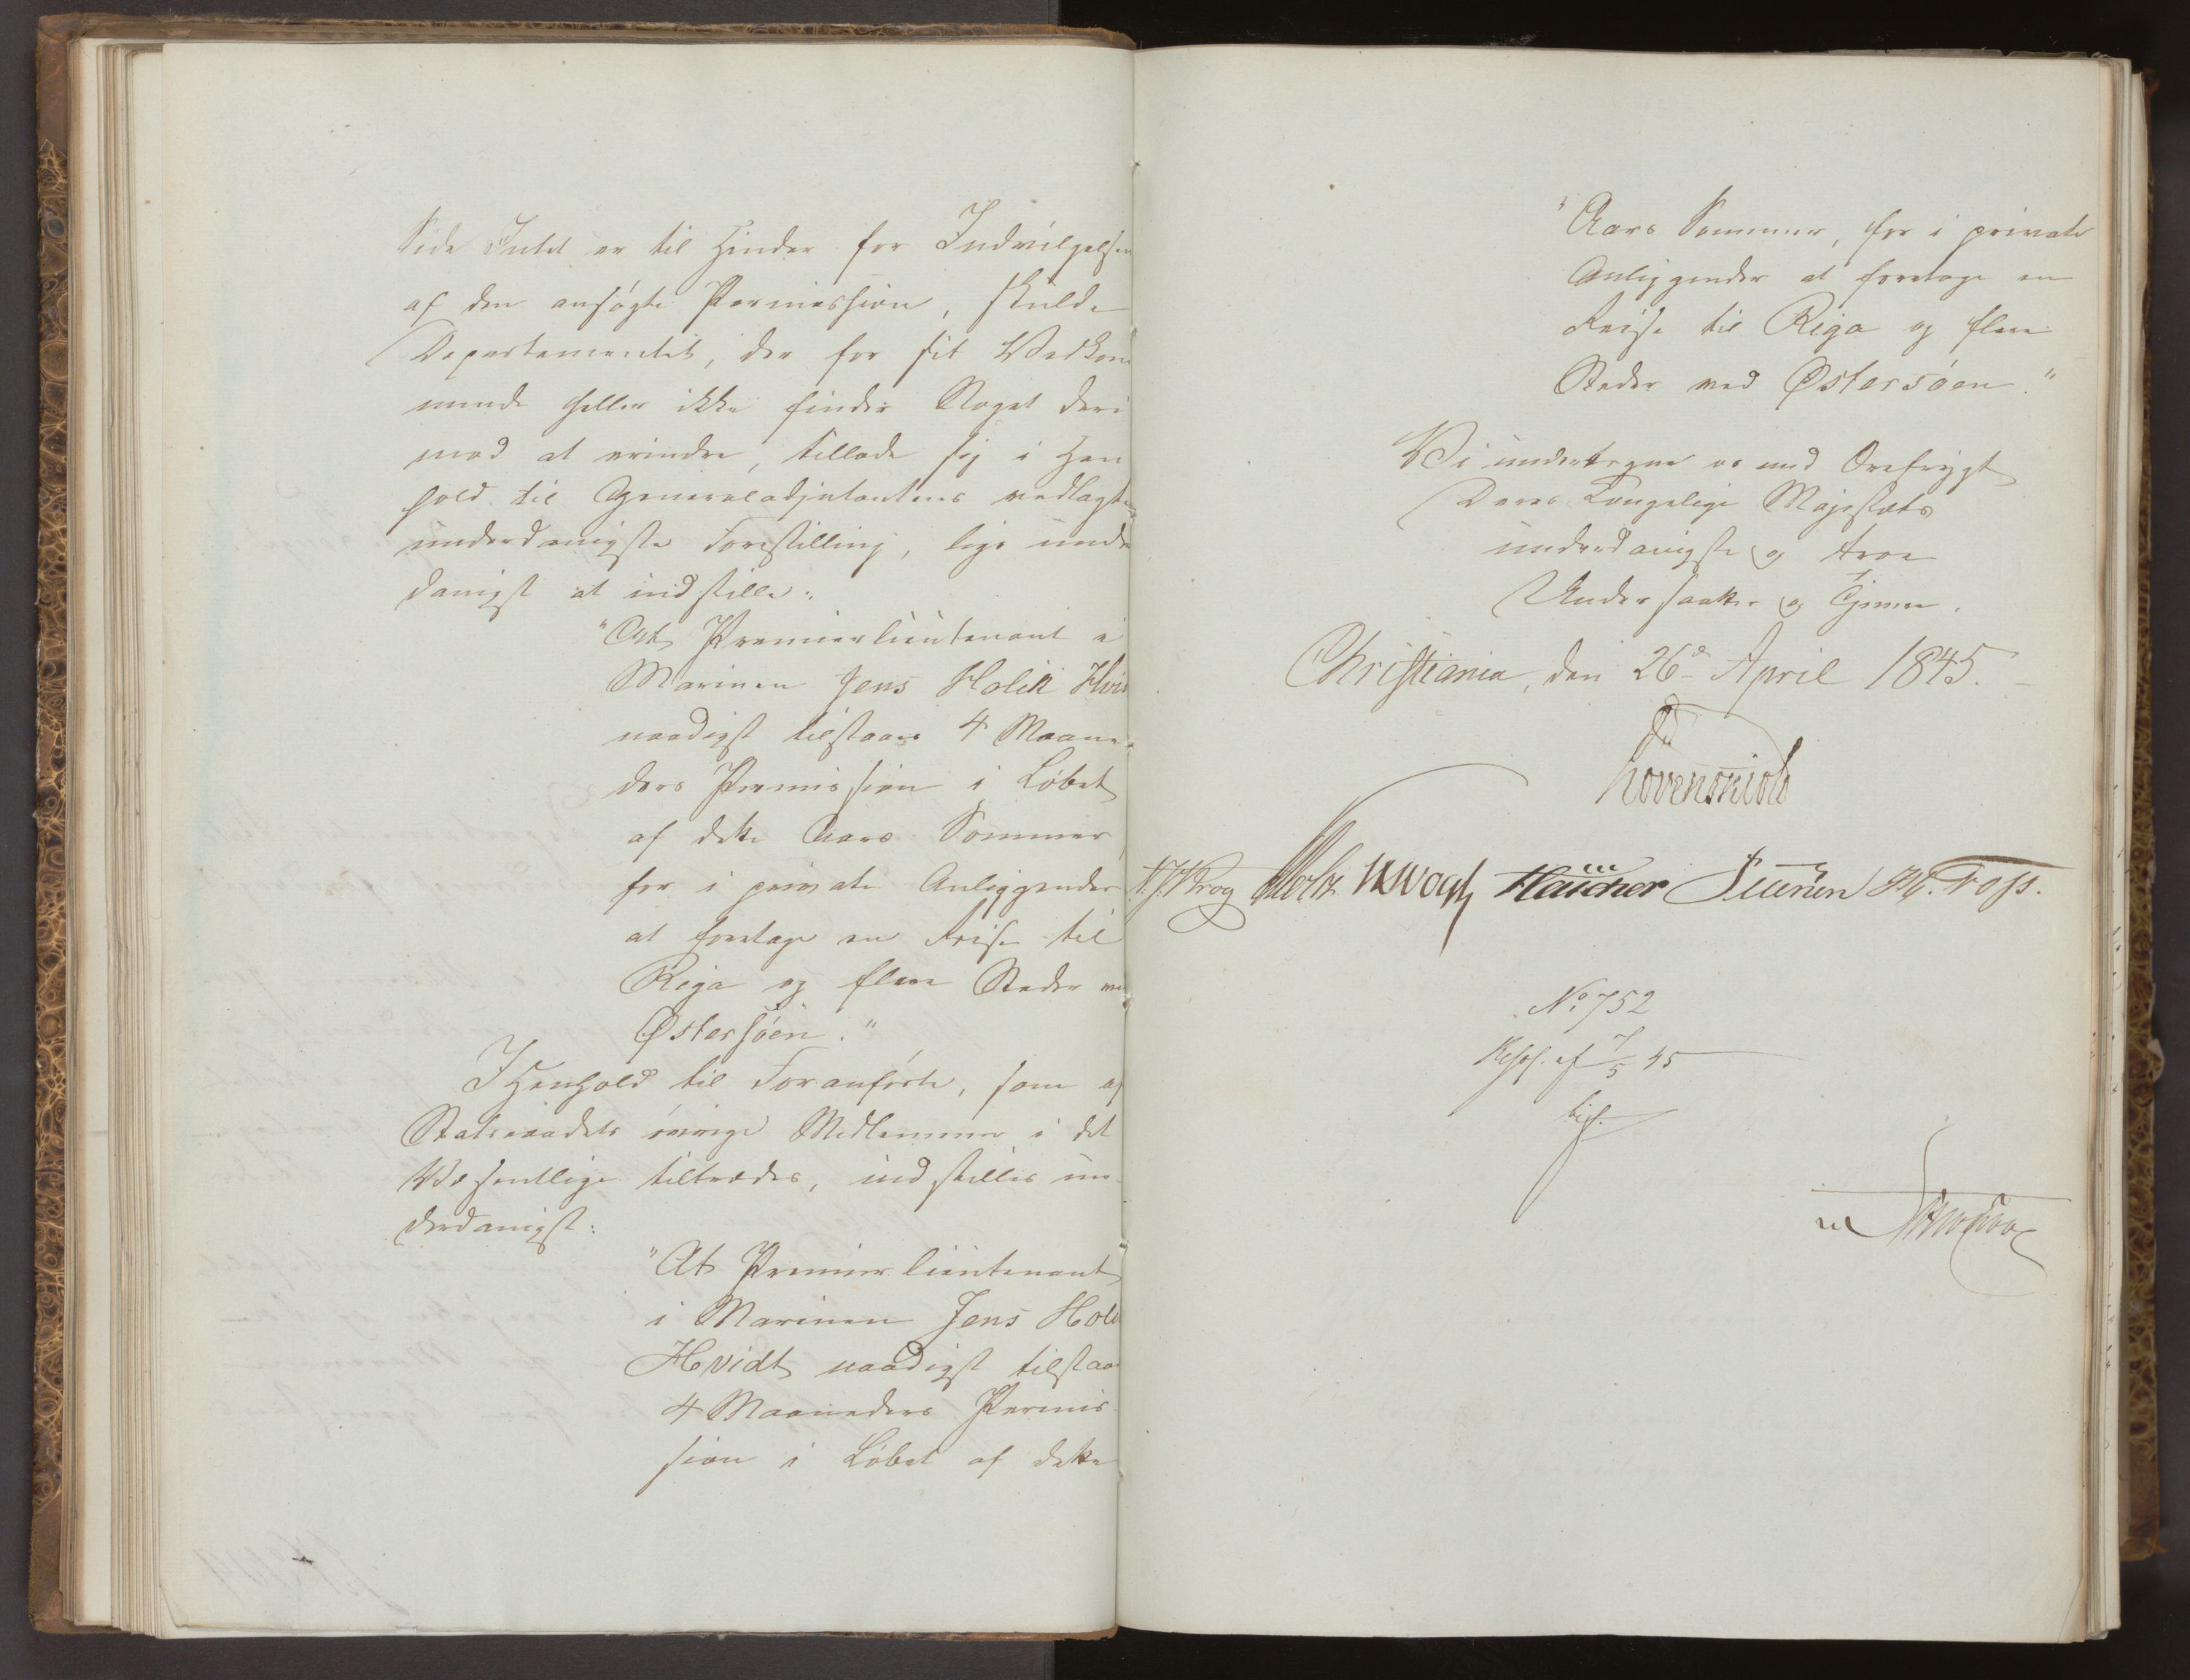 Side Intet er til Hinder for Indvilgelsen
af den ansøgte Permission, skulde
Departementet, der for sit Vedkom
mende heller ikke finder Noget deri
mod at erindre, tillade sig i Hen
hold til Generaladjutantens vedlagte
underdanigste Forestilling, lige under
danigst at indstille:
"At Premierlieutenant i
Marinen Jens Holck Hvid
naadigst tilstaaes 4 Maane
ders Permission i Løbet
af dette Aars Sommer,
for i private Anliggender
at foretage en Reise til
Riga og flere Steder ved
Østersøen."
I Henhold til Foranførte, som af
Statsraadets øvrige Medlemmer i det
Væsentlige tiltrædes, indstilles un-
derdanigst:
"At Premierlieutenant
i Marinen Jens Holck
Hvidt naadigst tilstaaes
4 Maaneders Permis-
sion i Løbet af dette
"Aars Sommer, for i private
Anliggender at foretage en
Reise til Riga og flere
Steder ved Østersøen."
Vi undertegne os med Ærefrygt
Deres Kongelige Majestæts
underdanigste og troe
Undersaatter og Tjenere.
Christiania, den 26d April 1845.
Løvenskiold
Krog Holst Vogt Sibbern Foss.
No 752
Resol. af 7/5 45